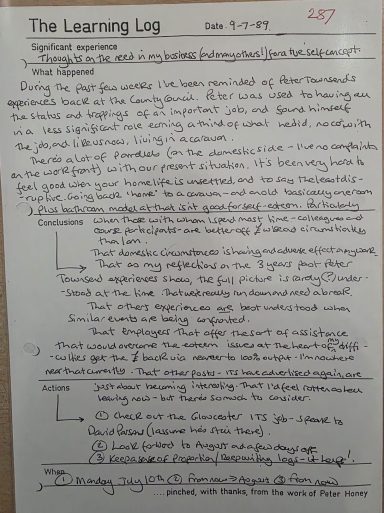 287
The Learning Log Date 9-7-89
Significant experience
Thoughts on the need in my business (and many others!) for a +ive self concept.
What happened
During the past few weeks I've been reminded of Peter Townsend's
experiences back at the County Council. Peter was used to having all
the status and trappings of an important job, and found himself
in a less significant role earning a third of what he did, no car with
the job, and like us now, living in a caravan.
There's a lot of parallels (on the domestic side - I've no complaints
on the work front) with our present situation. It's been very hard to
feel good when your home life is unsettled, and to say the least dis-
-ruptive. Going back 'home' to a caravan - and an old basically one room
plus bathroom model at that isn't good for self-esteem. Particularly
Conclusions when those with whom I spend most time - colleagues and
course participants - are better off £wise and circumstantially
than I am.
That domestic circumstances is having an adverse effect on my work.
That as my reflections on the 3 years past Peter
Townsend experiences show, the full picture is rarely (?) under-
-stood at the time. That we're really run down and need a break.
That others experiences are best understood when
similar events are being confronted.
That employers that offer the sort of assistance
that would overcome the esteem issues at the heart of my diffi-
-culties get the £ back via nearer to 100% output - I'm nowhere
near that currently. That other posts - ITS have advertised again, are
Actions just about becoming interesting. That I'd feel rotten about
leaving now - but there's so much to consider.
① Check out the Gloucester ITS job - speak to
David Parson (I assume he's still there)
② Look forward to August and a few days off.
③ Keep a sense of proportion/Keep writing logs - it helps!
When
① Monday July 10th ② From now → August ③ From now
....pinched, with thanks, from the work of Peter Honey